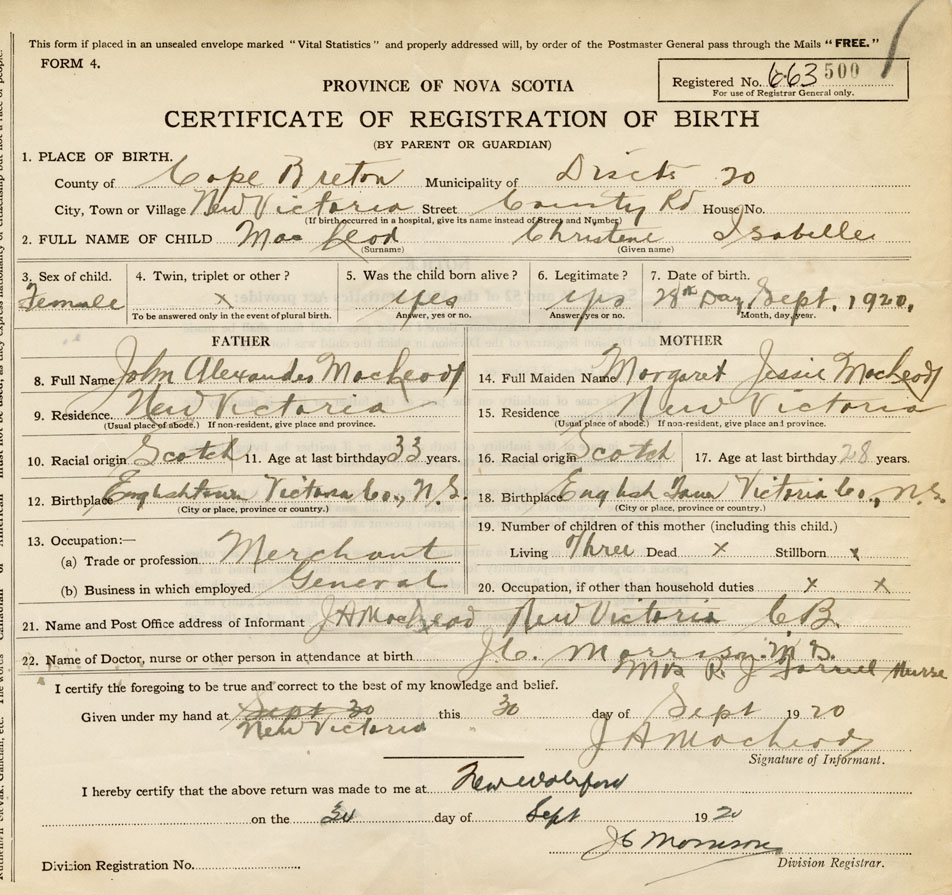 This form if placed in an unsealed envelope marked "Vital Statistics" and properly addressed will, by order of the Postmaster General pass through the Mails "FREE."
FORM 4.
Registered No. 663 500
For use of Registrar General only.
PROVINCE OF NOVA SCOTIA
CERTIFICATE OF REGISTRATION OF BIRTH
(BY PARENT OR GUARDIAN)
1. PLACE OF BIRTH.
County of Cape Breton Municipality of Districts 20
City, Town or Village New Victoria Street County Rd House No.
(If birth occurred in a hospital, give its name instead of Street and Number)
2. FULL NAME OF CHILD MacLeod Christene Isabelle
(Surname) (Given name)
3. Sex of child. 4. Twin, triplet or other? 5. Was the child born alive? 6. Legitimate? 7. Date of birth.
Female x yes yes 28th Day Sept. 1920.
To be answered only in the event of plural birth. Answer, yes or no. Answer, yes or no. Month, day, year.
FATHER MOTHER
8. Full Name John Alexander MacLeod 14. Full Maiden Name Margaret Jessie MacLeod
9. Residence. New Victoria 15. Residence New Victoria
(Usual place of abode.) If non-resident, give place and province. (Usual place of abode.) If non-resident, give place and province.
10. Racial origin Scotch 11. Age at last birthday 33 years. 16. Racial origin Scotch 17. Age at last birthday 28 years.
12. Birthplace Englishtown Victoria Co., N.S. 18. Birthplace English Town Victoria Co., N.S.
(City or place, province or country.) (City or place, province or country.)
13. Occupation:— 19. Number of children of this mother (including this child.)
(a) Trade or profession Merchant Living Three Dead x Stillborn x
(b) Business in which employed General 20. Occupation, if other than household duties x x
21. Name and Post Office address of Informant J A MacLeod New Victoria C B.
22. Name of Doctor, nurse or other person in attendance at birth J.C. Morrison. M.D.
Mrs R. J Farrell Nurse
I certify the foregoing to be true and correct to the best of my knowledge and belief.
Given under my hand at Sept 30 this 30 day of Sept 1920
New Victoria
J A MacLeod
Signature of Informant.
I hereby certify that the above return was made to me at New Waterford
on the 30 day of Sept 1920
J C Morrison
Division Registrar.
Division Registration No.